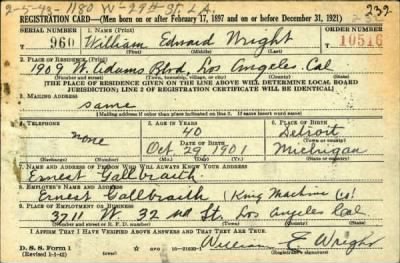 2-5-43-1180 W-29th St. L.A. 232
REGISTRATION CARD—(Men born on or after February 17, 1897 and on or before December 31, 1921)
SERIAL NUMBER 1. NAME (Print) ORDER NUMBER
U 960 William Edward Wright 10516
(First) (Middle) (Last)
2. PLACE OF RESIDENCE (Print)
1909 W. Adams Blvd Los Angeles Cal
(Number and street) (Town, township, village, or city) (County) (State)
[THE PLACE OF RESIDENCE GIVEN ON THE LINE ABOVE WILL DETERMINE LOCAL BOARD
JURISDICTION; LINE 2 OF REGISTRATION CERTIFICATE WILL BE IDENTICAL]
3. MAILING ADDRESS
same
[Mailing address if other than place indicated on line 2. If same insert word same]
4. TELEPHONE 5. AGE IN YEARS 6. PLACE OF BIRTH
none 40 Detroit
DATE OF BIRTH (Town or county)
Oct 29 1901 Michigan
(Exchange) (Number) (Mo.) (Day) (Yr.) (State or country)
7. NAME AND ADDRESS OF PERSON WHO WILL ALWAYS KNOW YOUR ADDRESS
Ernest Gallbraith
8. EMPLOYER'S NAME AND ADDRESS
Ernest Gallbraith (King Machine Co)
9. PLACE OF EMPLOYMENT OR BUSINESS
3711 W. 32nd St. Los Angeles Cal
(Number and street or R. F. D. number) (Town) (County) (State)
I AFFIRM THAT I HAVE VERIFIED ABOVE ANSWERS AND THAT THEY ARE TRUE.
D. S. S. Form 1
(Revised 1-1-42) (over) William E Wright
(Registrant's signature)